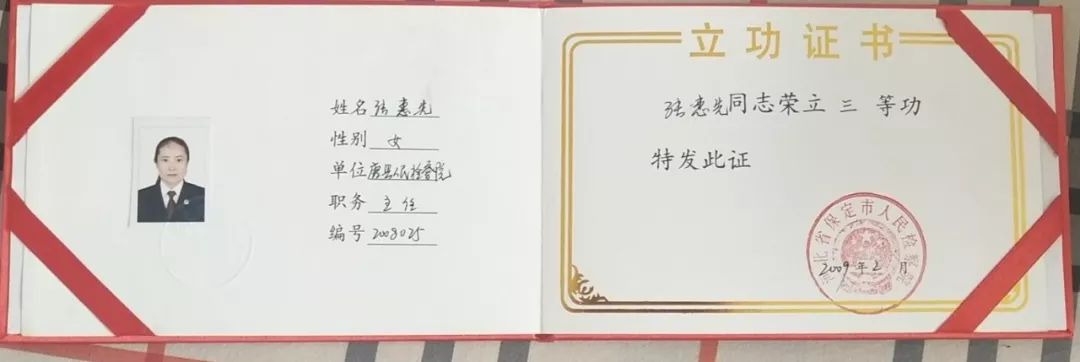 姓名 张惠先
性别 女
单位 唐县人民检察院
职务 主任
编号 2008025
立功证书
张惠先同志荣立 三 等功
特发此证
河北省保定市人民检察院
2009年2月